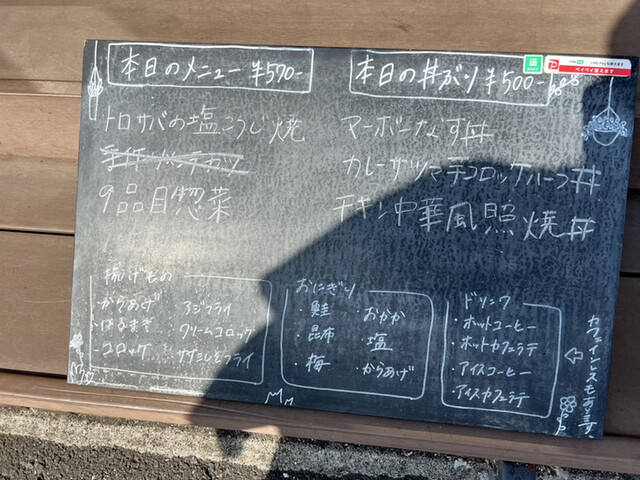 本日のメニュー ¥570-
トロサバの塩こうじ焼
9品目惣菜
本日の丼ぶり ¥500-
マーボーなす丼
チキン中華風照焼丼
揚げもの
・からあげ
・はるまき
・コロッケ
・アジフライ
・クリームコロッケ
おにぎり
・鮭
・昆布
・梅
・おかか
・塩
・からあげ
ドリンク
・ホットコーヒー
・ホットカフェラテ
・アイスコーヒー
・アイスカフェラテ
カフェインレスもあります
ペイペイ使えます